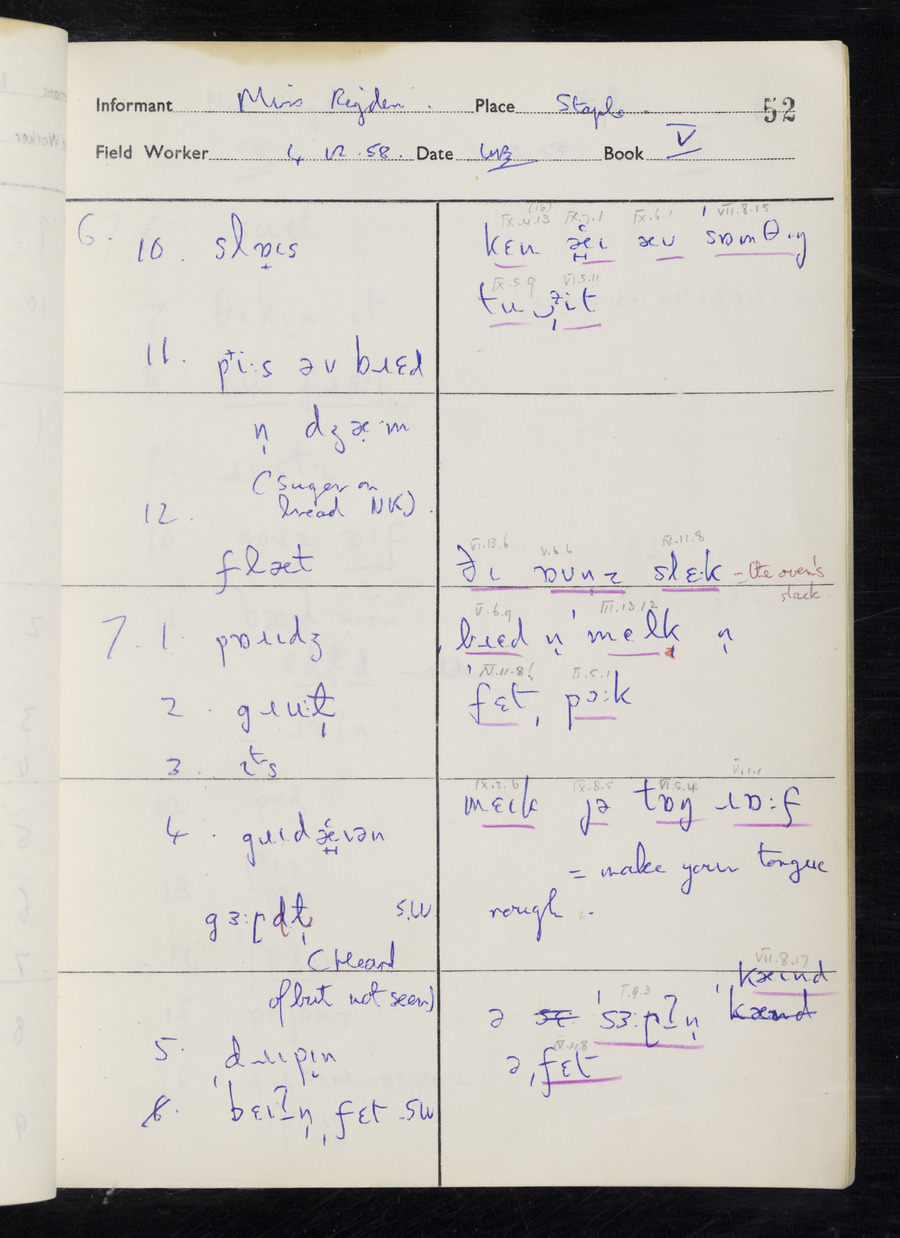 Informant Miss Rigden. Place Staple 52
Field Worker 4 12 .58. Date Book V
6. 10. slɒɪs
11. pi:s əv bɹɛd
n̩ dʒæ·m
(Sugar on
bread NK).
12.
flæt
7. 1. pɒɹɪdʒ
2. gɹu:t̩
3. ɪts
4. gɹɪdæɪən
gɜ:ɽdl̩ S.W.
(Heard
of but not seen)
5. dɹɪpɪn
6. bɛɪʔn̩ fɛt S.W
IX.4.13 (16) IX.7.1 IX.6.1 VII.8.15
kɛn æɪ æv sɒmθɪŋ
IX.5.9 VI.5.11
tu ɪt
VI.13.6 V.6.6 IV.11.8
ðɪ ɒvn̩z slɛ·k – the oven's
slack.
V.6.9 III.13.12
bɹɛd n̩ mɛlk n̩
VI.11.8
fɛt, pɔ:k
IX.3.6 IX.8.5 VI.5.4 V.1.1
mɛɪk jə tɒŋ ɹɒ:f
= make your tongue
rough.
VII.8.17
kæɪnd
I.9.3
ə sɜ:ɽʔn̩
IV.11.8
ə fɛt